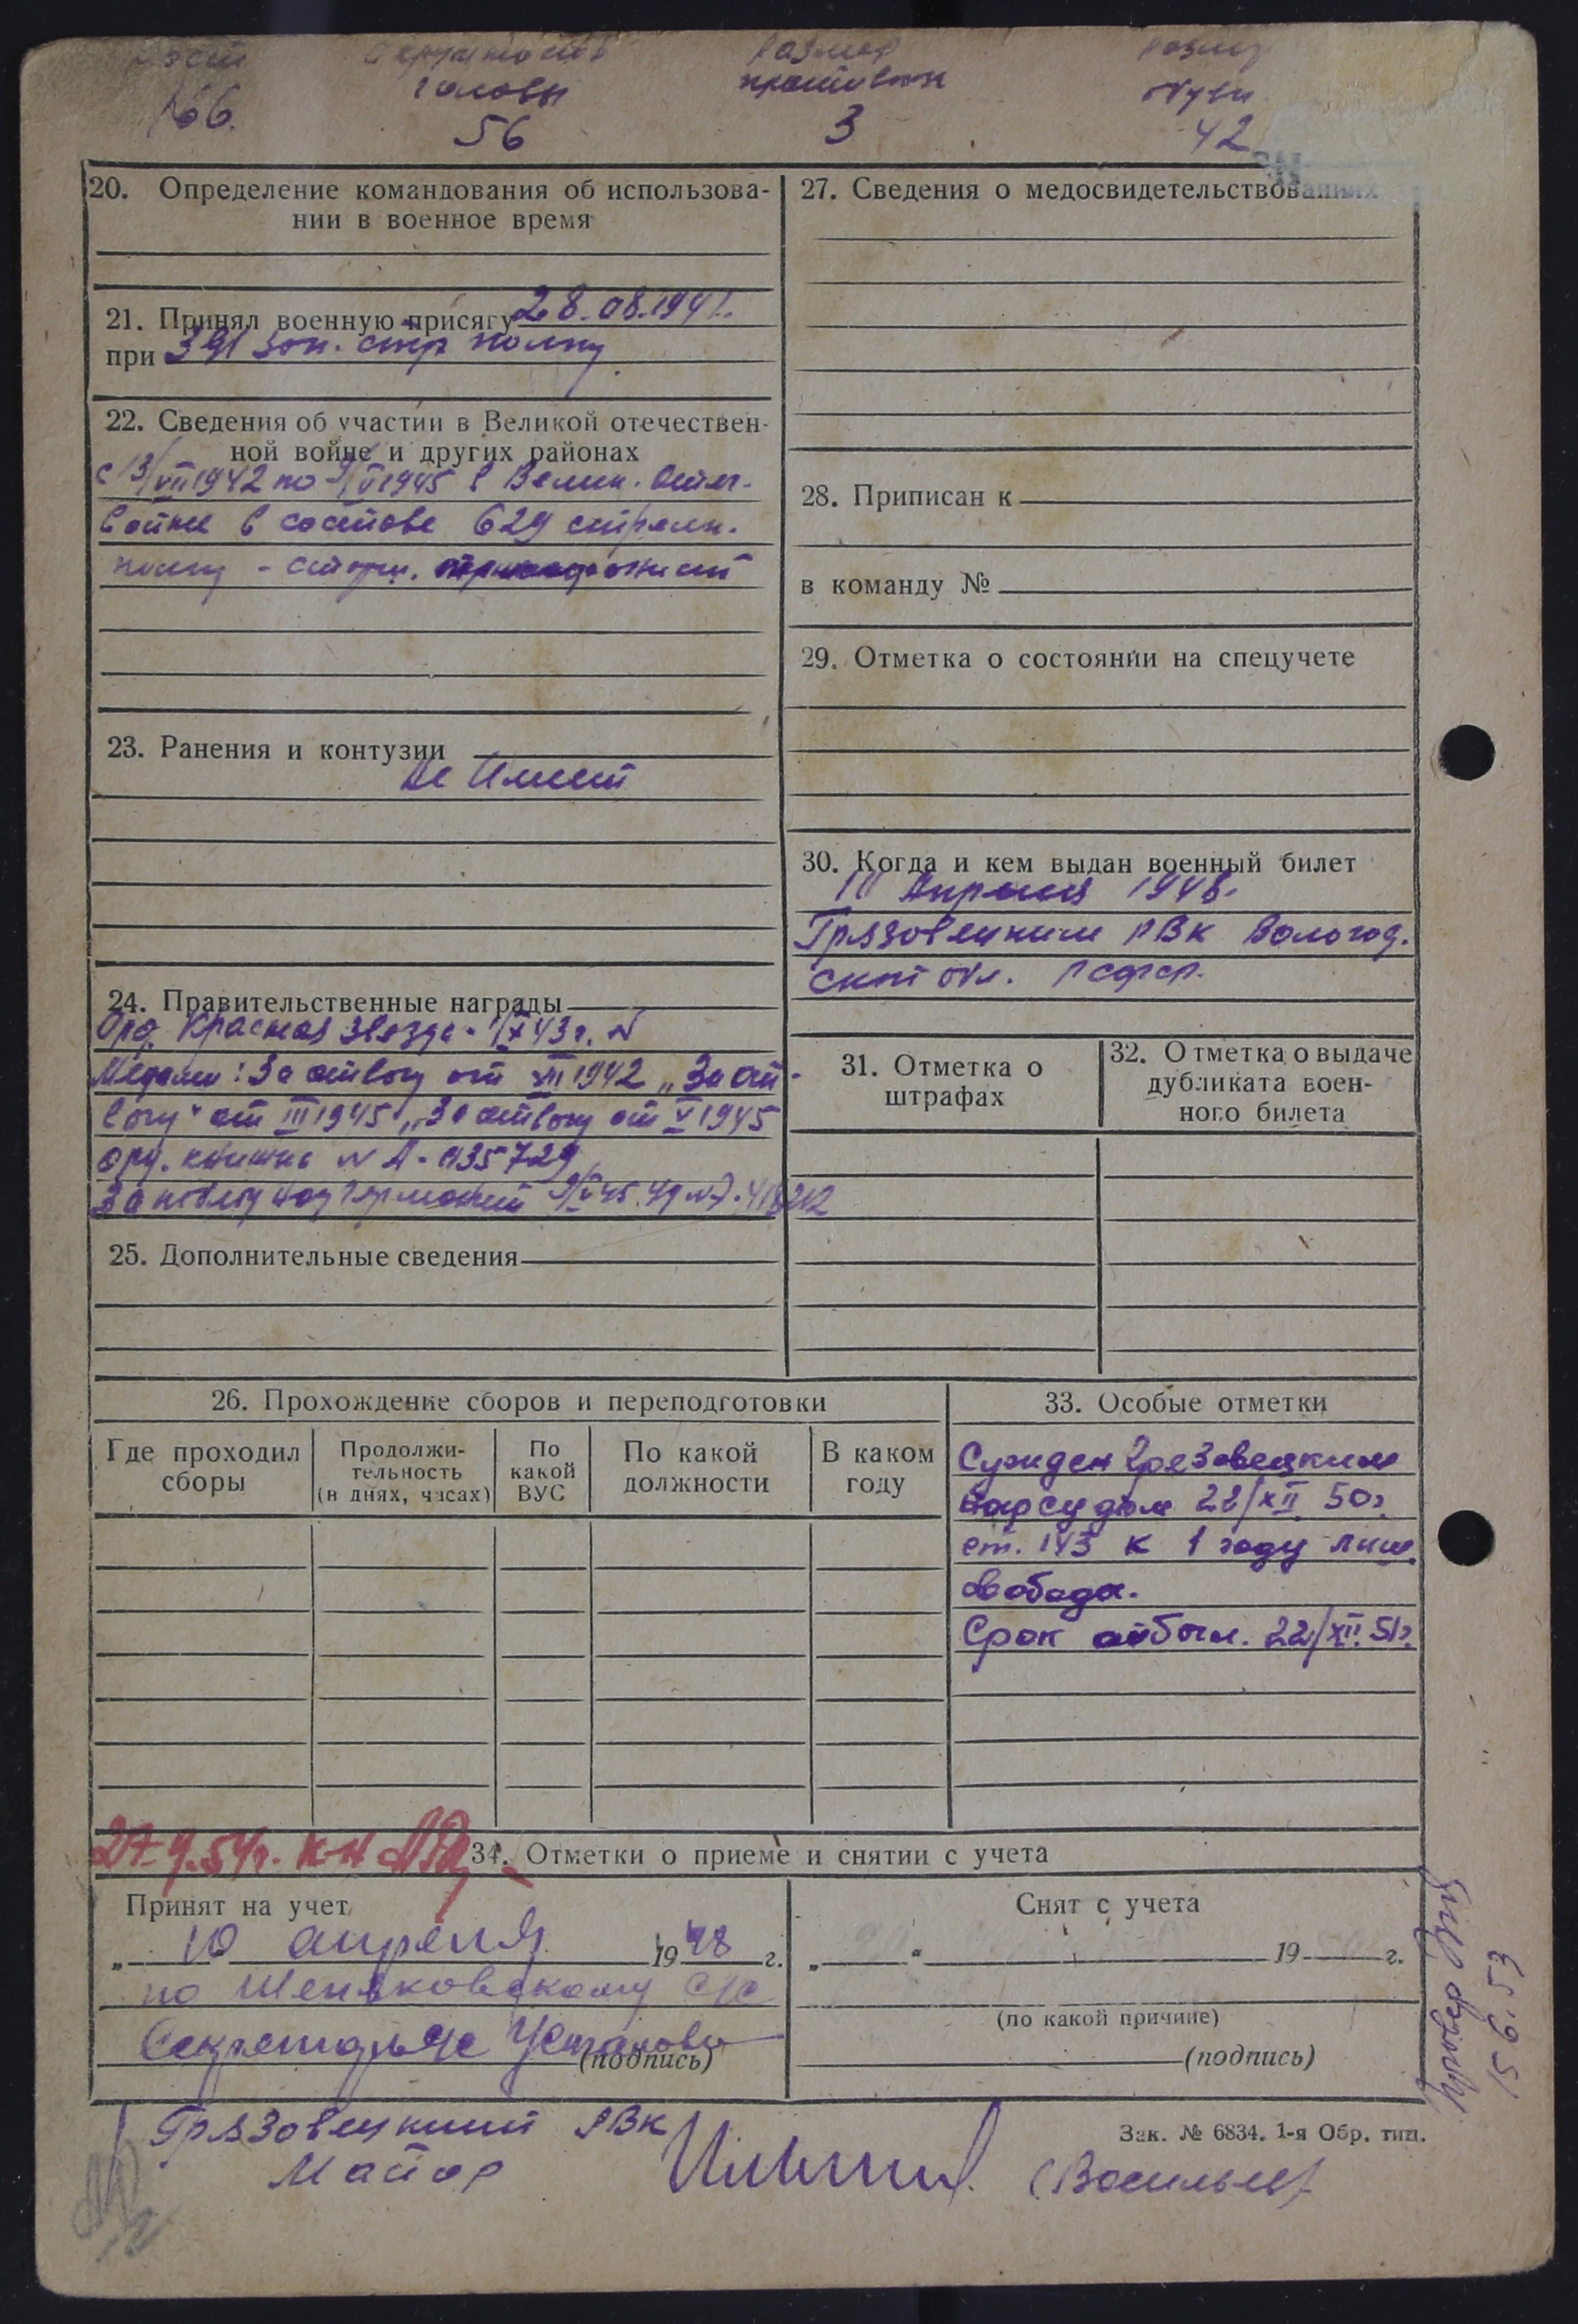 Рост Окружность Размер Размер
головы противогаза обуви
166. 56 3 42
20. Определение командования об использова-
нии в военное время
21. Принял военную присягу 28.08.1941.
при 391 зап. стр полку
22. Сведения об участии в Великой отечествен-
ной войне и других районах
с 13/VII 1942 по 9/V 1945 в Велик. Отеч.
войне в составе 629 стрелк.
полку -
23. Ранения и контузии
Не Имеет
24. Правительственные награды
Орд. Красная звезда - 1/X 43г. N
Медали: За отвагу от VIII 1942 „За от-
вагу" от III 1945, „За отвагу от V 1945
орд. книжка N А-035729
За победу над Германией 9/V 45.
25. Дополнительные сведения
27. Сведения о медосвидетельствованиях
28. Приписан к
в команду №
29. Отметка о состоянии на спецучете
30. Когда и кем выдан военный билет
10 Апреля 1948.
Грязовецким РВК Вологод.
ской обл. РСФСР.
31. Отметка о
штрафах
32. Отметка о выдаче
дубликата воен-
ного билета
26. Прохождение сборов и переподготовки
Где проходил
сборы
Продолжи-
тельность
(в днях, часах)
По
какой
ВУС
По какой
должности
В каком
году
33. Особые отметки
Сужден Грезовецким
нарсудом 22/XII. 50г.
ст. 143 к 1 году лиш.
свобода.
Срок отбыл. 22/XII. 51г.
27.4.54г.
34. Отметки о приеме и снятии с учета
Принят на учет
„ 10 апреля 1948 г.
по Шеняковскому с/с
Секретарь с/с
(подпись)
Снят с учета
„ “ 19 г.
(по какой причине)
(подпись)
Провер
15 6. 53
Грязовецкий РВК
Майор (Васильев)
Зак. № 6834. 1-я Обр. тип.